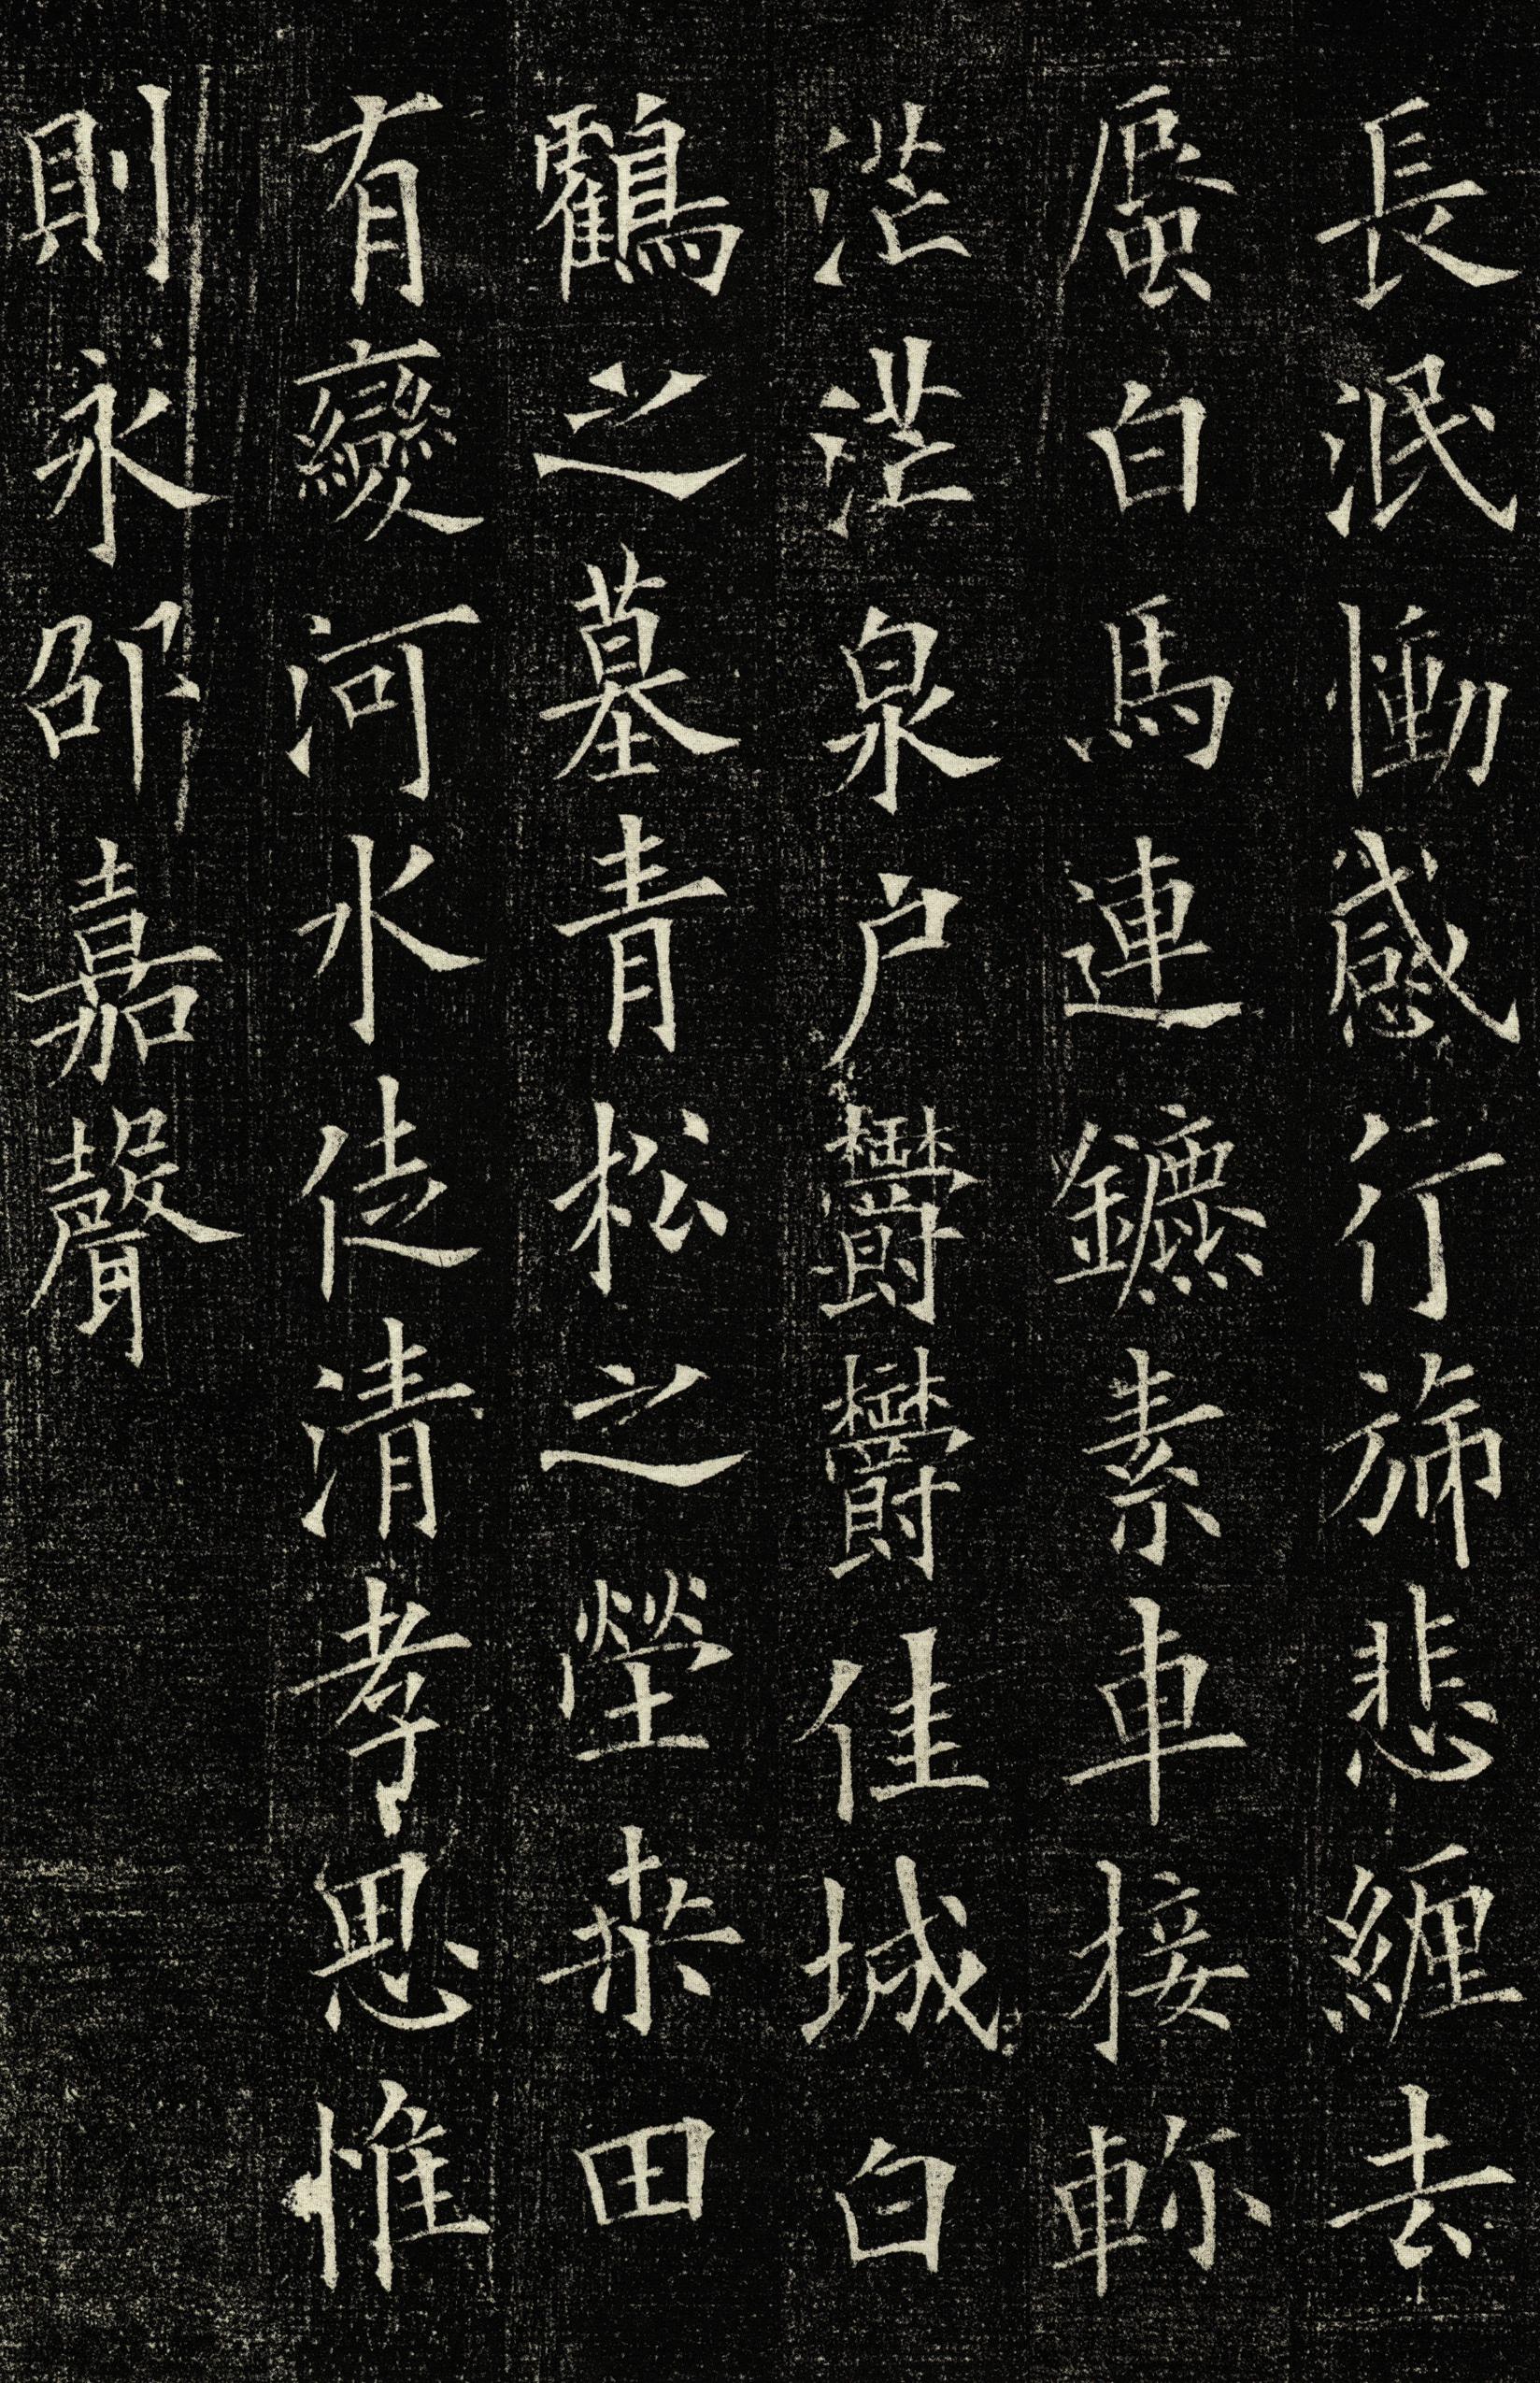 長泯慟感行旆悲纏去
蜃白馬連鑣素車接軫
茫茫泉户鬱鬱佳城白
鶴之墓青松之塋桒田
有變河水徒清孝思惟
則永邵嘉聲